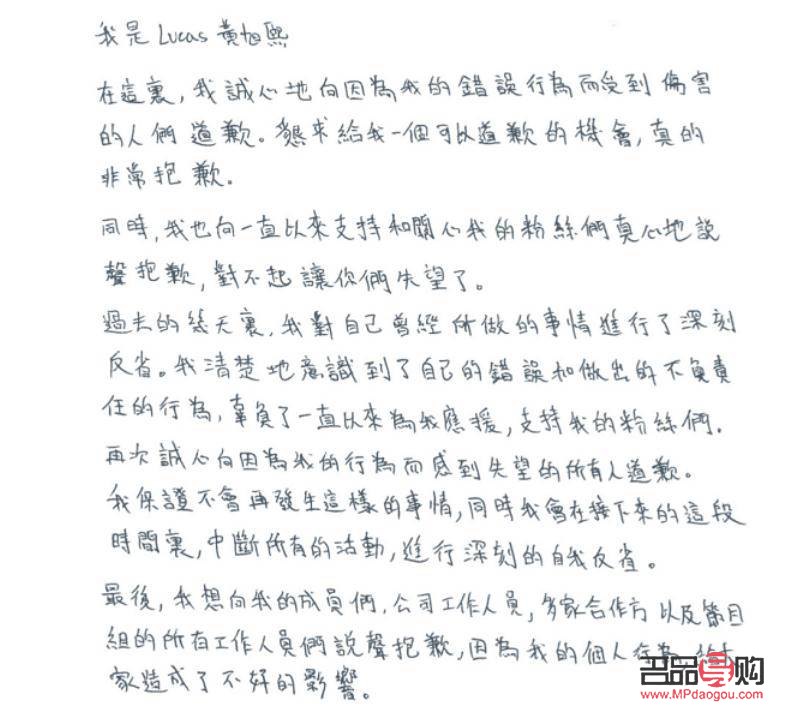 我是 Lucas 黃旭熙
在這裏，我誠心地向因為我的錯誤行為而受到傷害
的人們道歉。懇求給我一個可以道歉的機會，真的
非常抱歉．
同時，我也向一直以來支持和關心我的粉絲們真心地說
聲抱歉，對不起讓你們失望了。
過去的幾天裏，我對自己曾經所做的事情進行了深刻
反省。我清楚地意識到了自己的錯誤和做出的不負責
任的行為，辜負了一直以來為我應援，支持我的粉絲們．
再次誠心向因為我的行為而感到失望的所有人道歉。
我保證不會再發生這樣的事情，同時我會在接下來的這段
時間裏，中斷所有的活動，進行深刻的自我反省。
最後，我想向我的成員們，公司工作人員，多家合作方以及節目
組的所有工作人員們說聲抱歉，因為我的個人行為，給大
家造成了不好的影響。
名品导购
www.MPdaogou.com